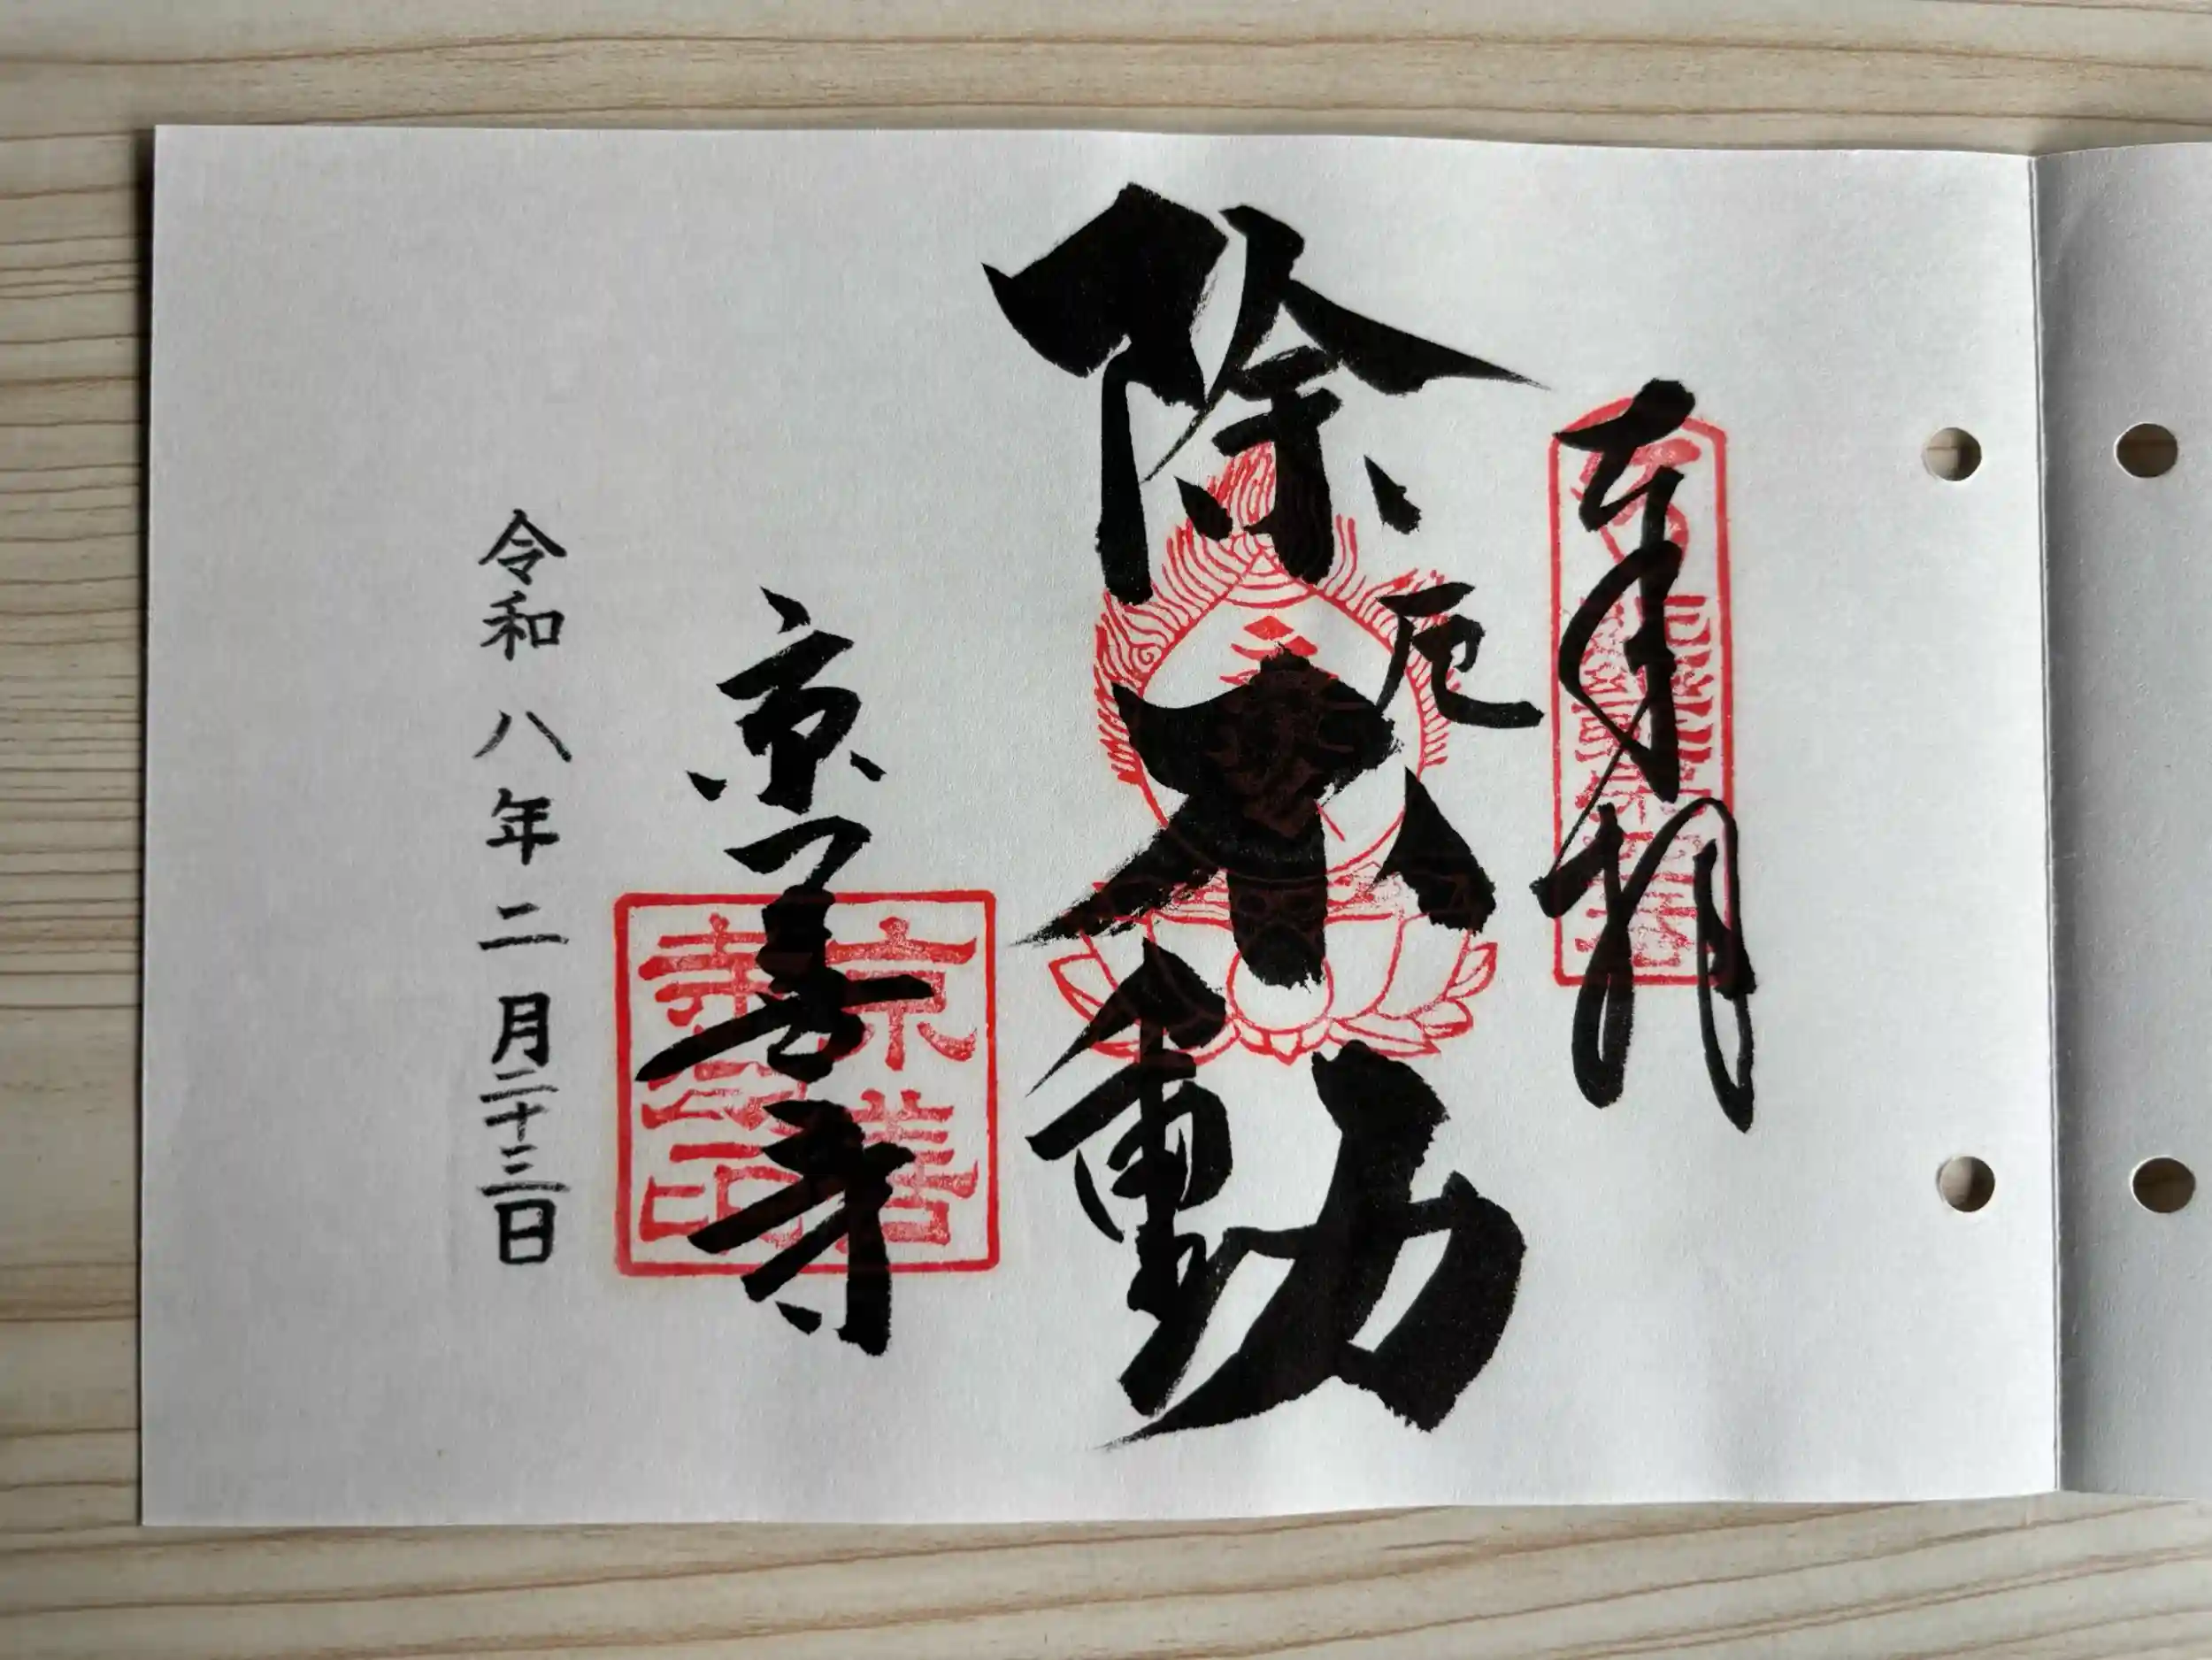 奉拝
除厄不動
京善寺
京善寺之印
令和八年二月二十三日